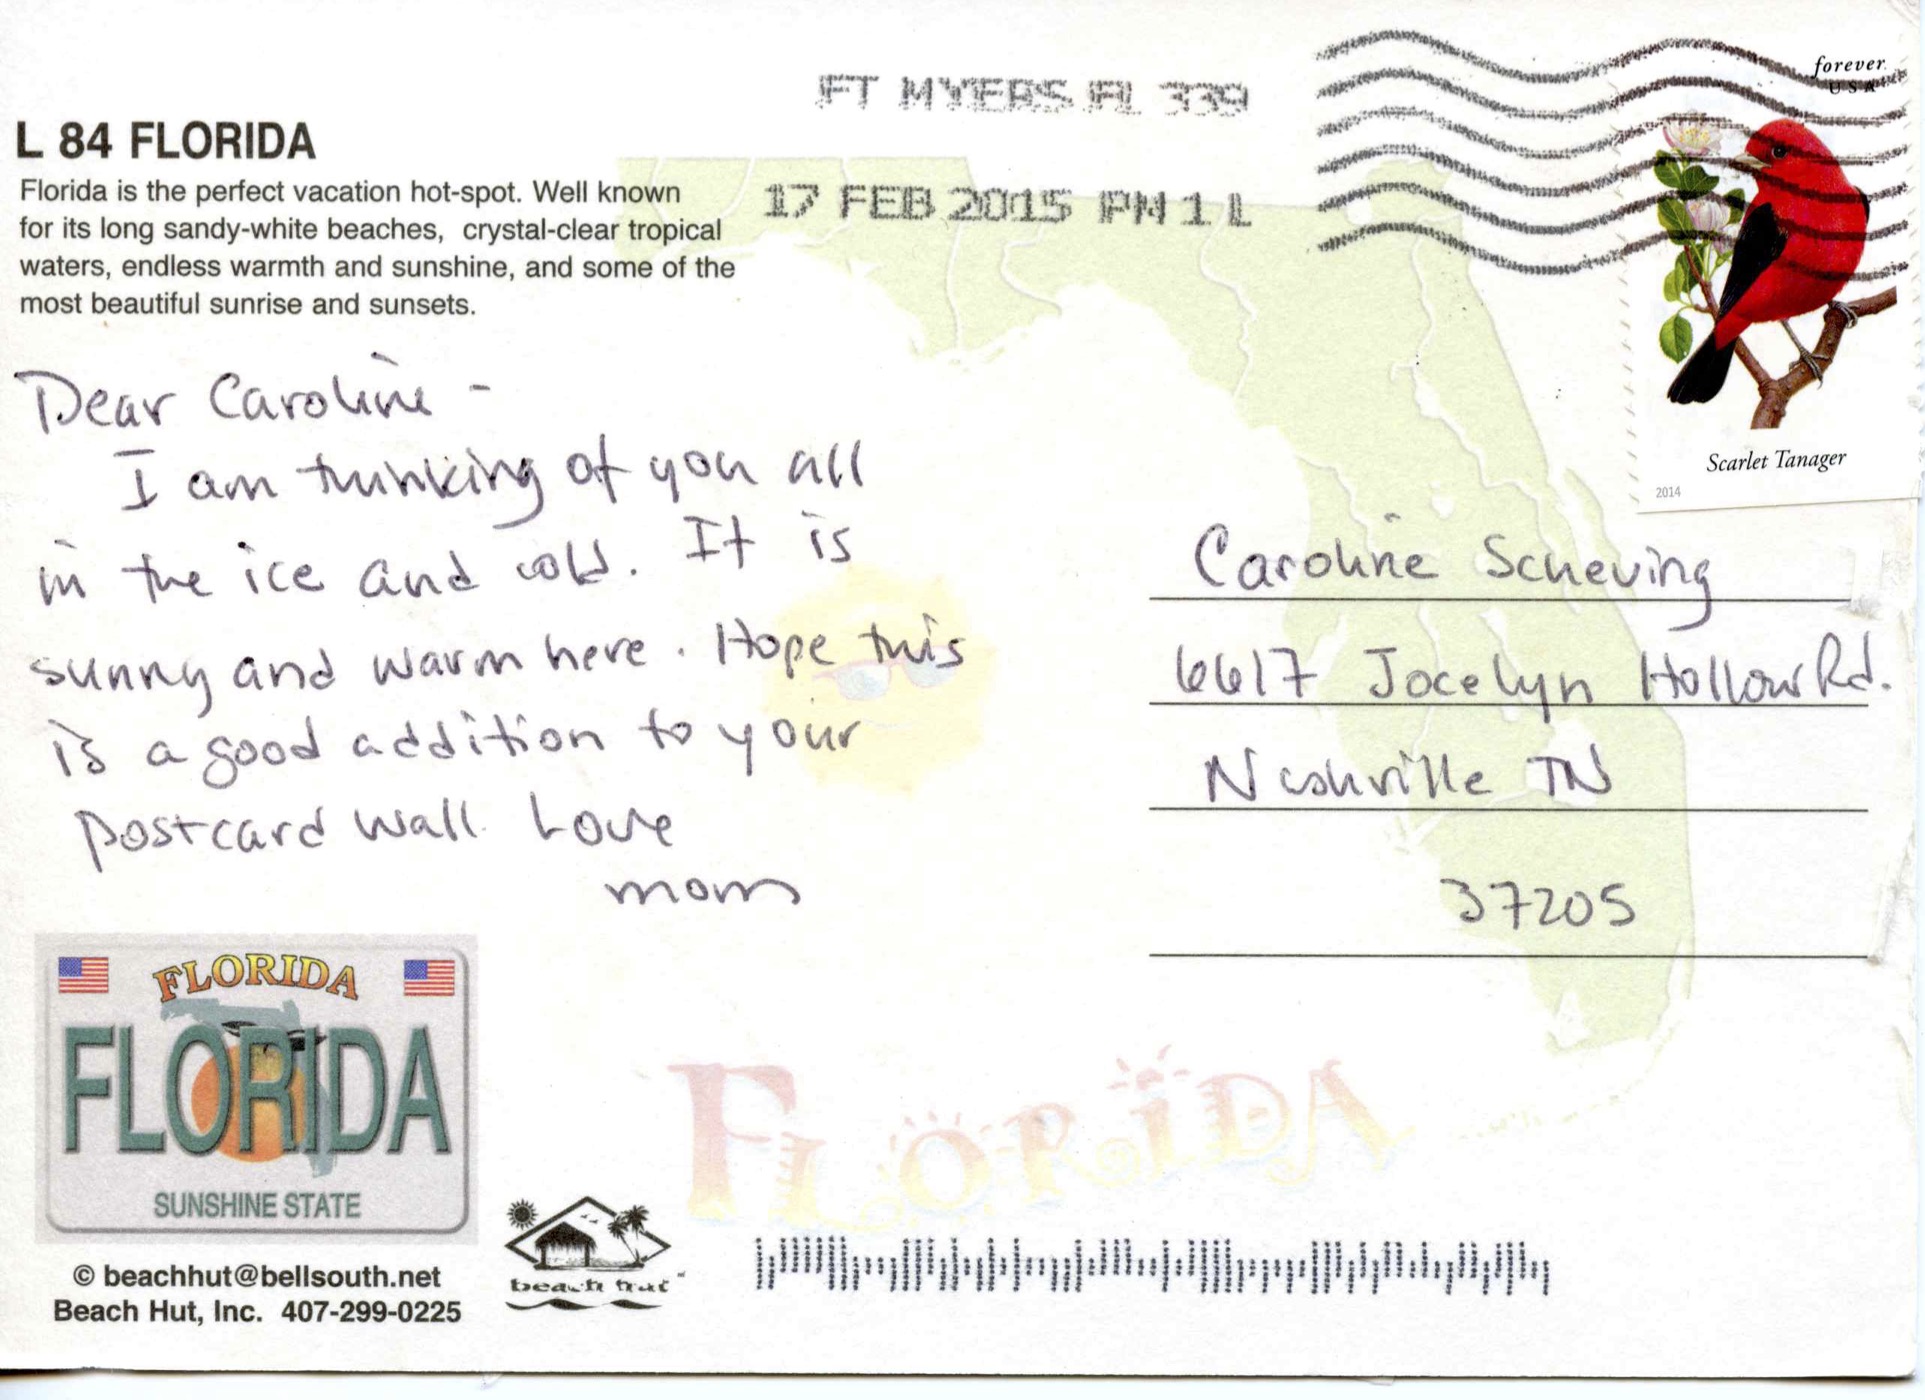 FT MYERS FL 339
17 FEB 2015 PM 1 L
forever
USA
Scarlet Tanager
2014
L 84 FLORIDA
Florida is the perfect vacation hot-spot. Well known
for its long sandy-white beaches, crystal-clear tropical
waters, endless warmth and sunshine, and some of the
most beautiful sunrise and sunsets.
Dear Caroline -
I am thinking of you all
in the ice and cold. It is
sunny and warm here. Hope this
is a good addition to your
postcard wall. Love
mom
Caroline Scheving
6617 Jocelyn Hollow Rd.
Nashville TN
37205
FLORIDA
FLORIDA
SUNSHINE STATE
© beachhut@bellsouth.net
Beach Hut, Inc. 407-299-0225
beach hut
FLORIDA